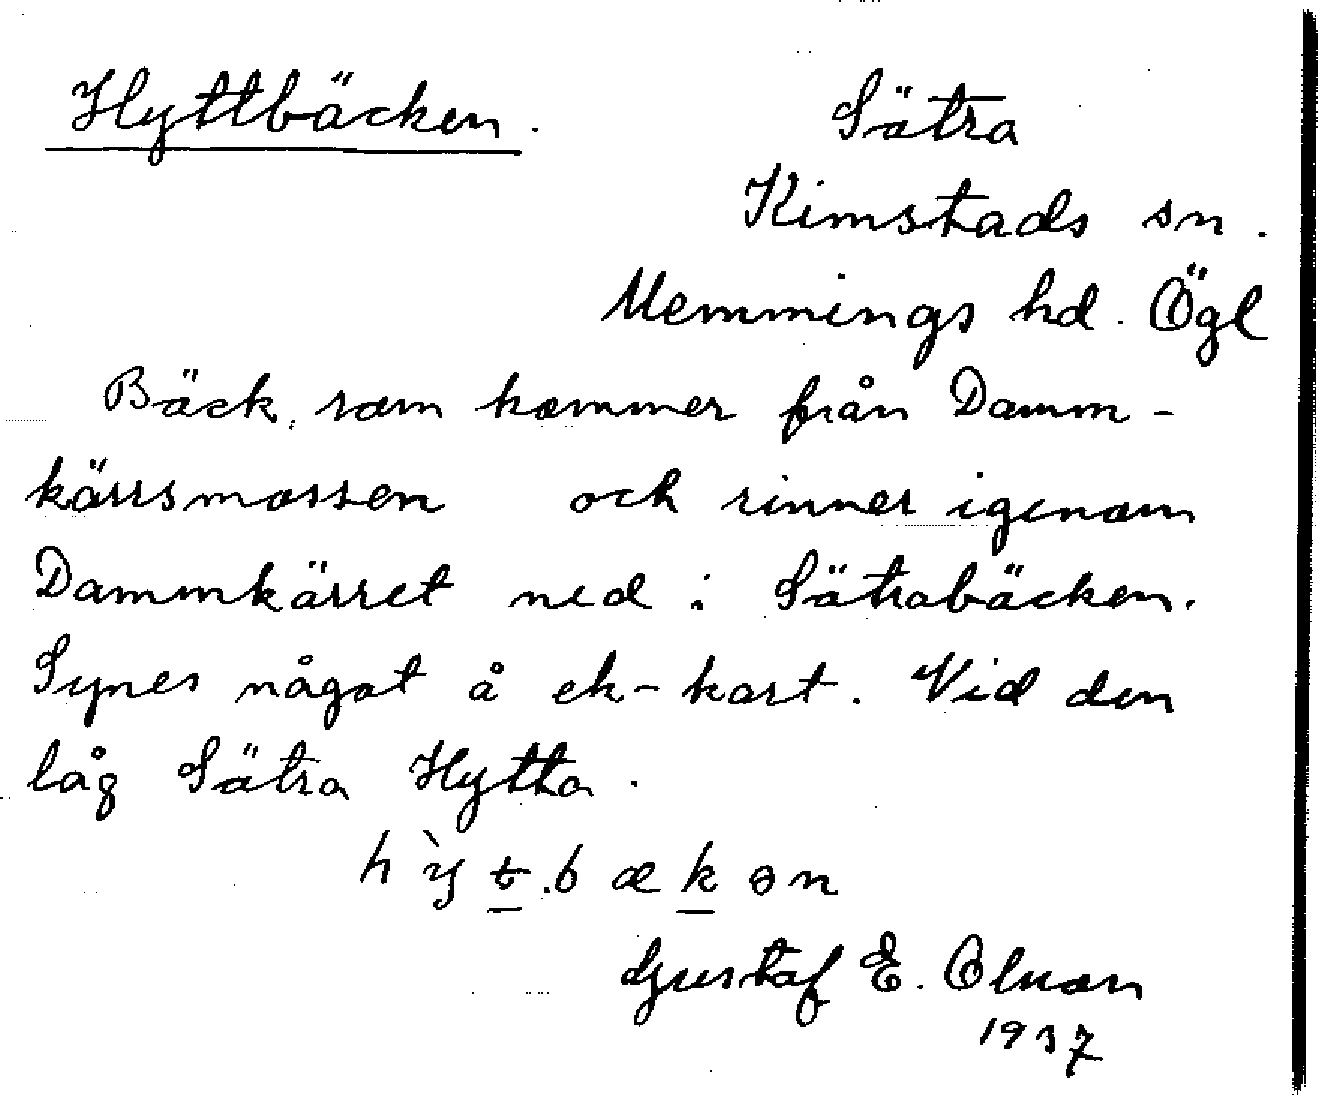 Hyttbäcken.
Sätra
Kimstads sn.
Memmings hd. Ögl
Bäck, som kommer från Damm-
kärrsmossen och rinner igenom
Dammkärret ned i Sätrabäcken.
Synes något å ek-kart. Vid den
låg Sätra Hytta.
h`yt.bækən
Gustaf E. Olson
1937